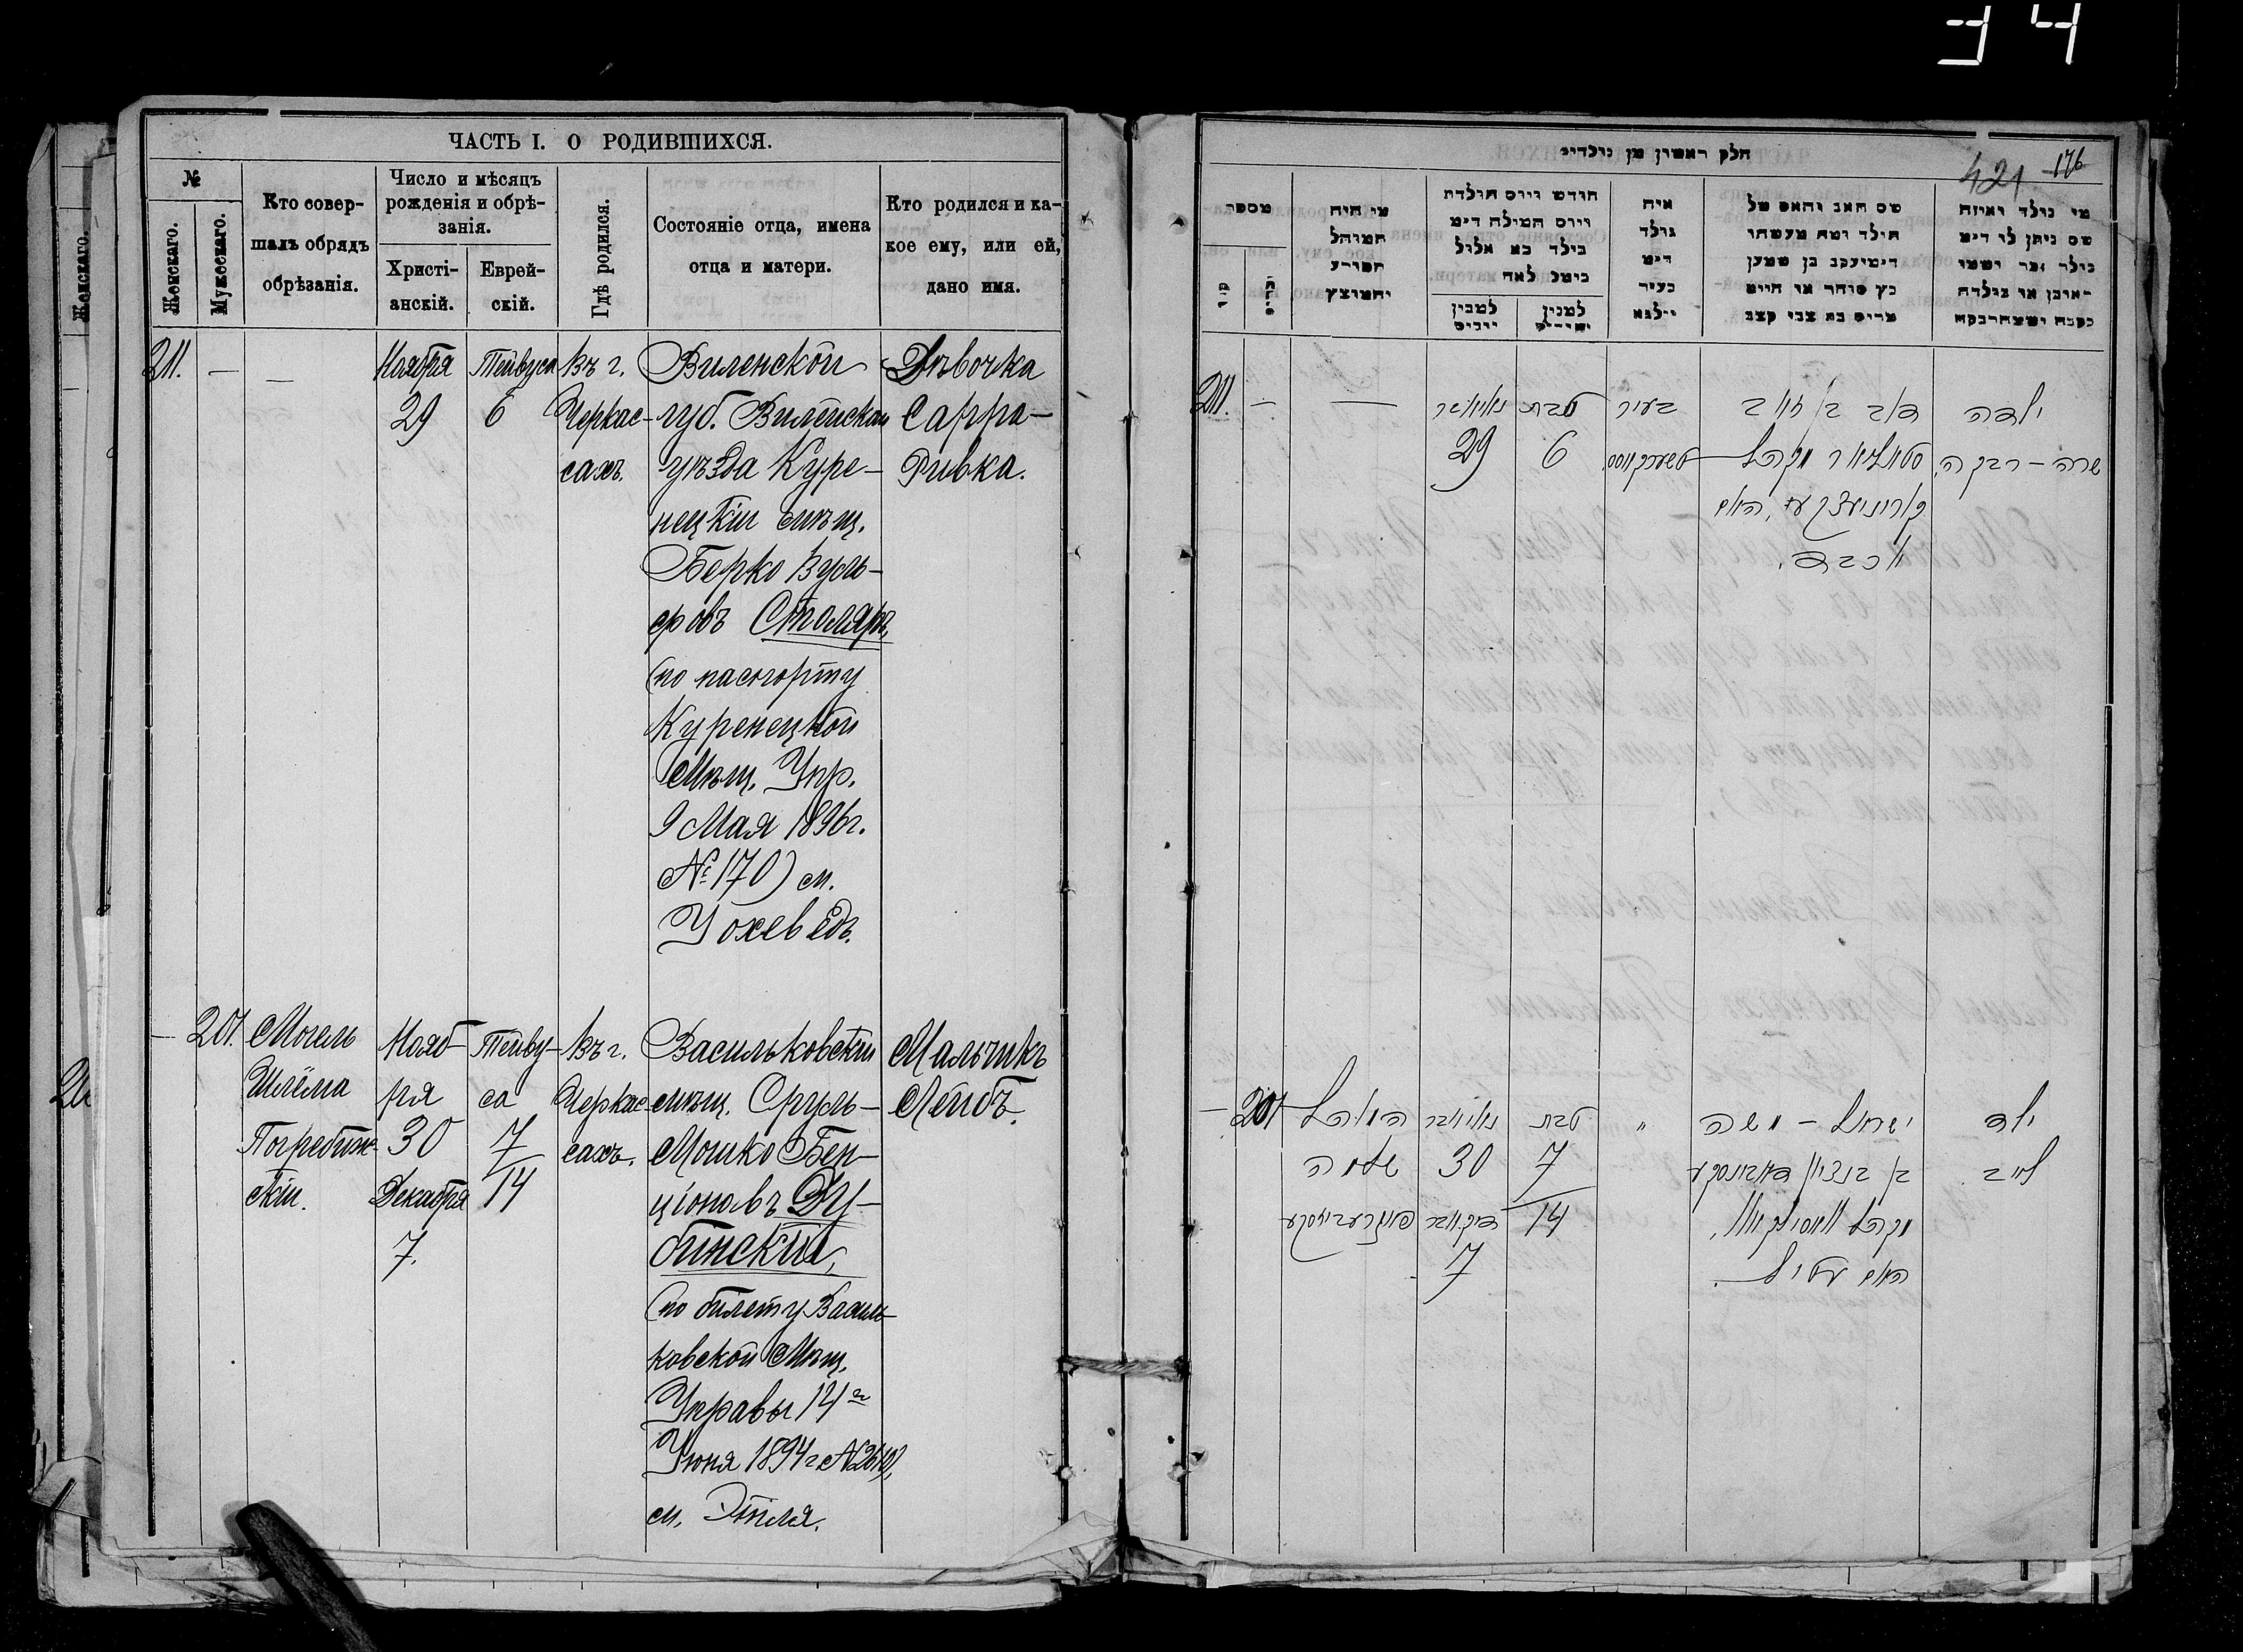 ЧАСТЬ I. О РОДИВШИХСЯ.
№
Женскаго.
Мужескаго.
Кто совер-
шалъ обрядъ
обрѣзанія.
Число и мѣсяцъ
рожденія и обрѣ-
занія.
Христі-
анскій.
Еврей-
скій.
Гдѣ родился.
Состояніе отца, имена
отца и матери.
Кто родился и ка-
кое ему, или ей,
дано имя.
Женскаго.
211. — —
Ноября
29
Тейвуса
6
Въ г.
Черкас-
сахъ.
Виленской
губ. Виленскаго
уѣзда Куре-
нецкій мѣщ.
Берко Вуль-
фовъ Столяръ,
(по паспорту
Куренецкой
Мѣщ. Упр.
9 Мая 1896 г.
№ 170) м.
Іохеведъ.
Дѣвочка
Сарра-
Ривка.
— 201.
Могель
Шлёма
Погребин-
скій.
Нояб-
ря
30
Декабря
7.
Тейву-
са
7
14
Въ г.
Черкас-
сахъ.
Васильковскій
мѣщ. Сруль-
Мошко Бен-
ціоновъ Ду-
бинскій,
(по билету Василь-
ковской Мѣщ.
Управы 14го
Іюня 1894 г.
м. Этля.
Мальчикъ
Лейбъ.
34
421
176
חלק ראשון מן נולדים
מספר
מי היה
המוהל
חודש ויום הולדת
ויום המילה
איה
נולד
שם האב והאם של
הילד ומה מעשהו
מי נולד ואיזה
שם ניתן לו
211. — —
נאיאבר
29
טבת
6
בעיר
טשערקאסס
דוב בן זאב
סטאליאר מקהל
האם
יוכבד.
ילדה
שרה-רבקה
— 201
המוהל
שלמה
נאיאבר
30
דיקאבר
7
טבת
7
14
"
ישראל-משה
בן בנציון
מקהל וואסילקאוו,
האם עטיל.
ילד
לייב